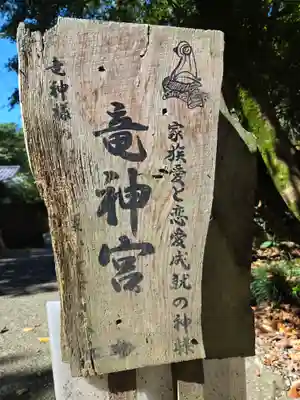 家族愛と恋愛成就の神様
竜神宮
竜神様